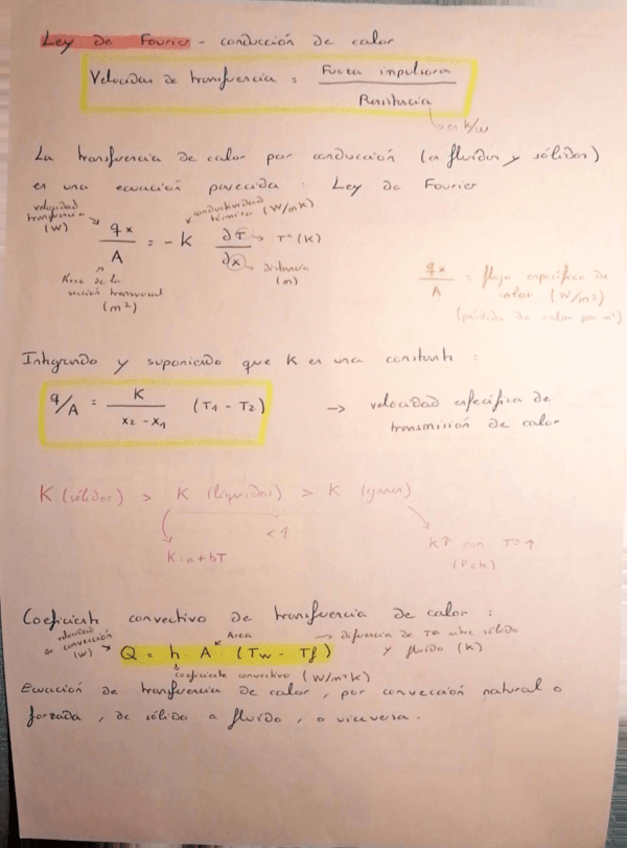 Ley de Fourier - conducción de calor
Velocidad de transferencia = Fuerza impulsora / Resistencia
en K/W
La transferencia de calor por conducción (en fluidos y sólidos)
es una ecuación parecida : Ley de Fourier
velocidad transferencia (W)
conductividad térmica (W/mK)
qx / A = - K ∂T / ∂x
Tª (K)
distancia (m)
Área de la sección transversal (m²)
qx / A = flujo específico de calor (W/m²)
(pérdida de calor por m²)
Integrando y suponiendo que K es una constante :
q/A = K / x2 - x1 (T1 - T2) → velocidad específica de
transmisión de calor
K (sólidos) > K (líquidos) > K (gases)
< 1
K = a + bT
K↑ con Tª ↑
(P cte)
Coeficiente convectivo de transferencia de calor :
velocidad de convección (W)
Área
diferencia de Tª entre sólido
y fluido (K)
Q = h · A · (Tw - Tf)
coeficiente convectivo (W/m²K)
Ecuación de transferencia de calor, por convección natural o
forzada, de sólido a fluido, o viceversa.